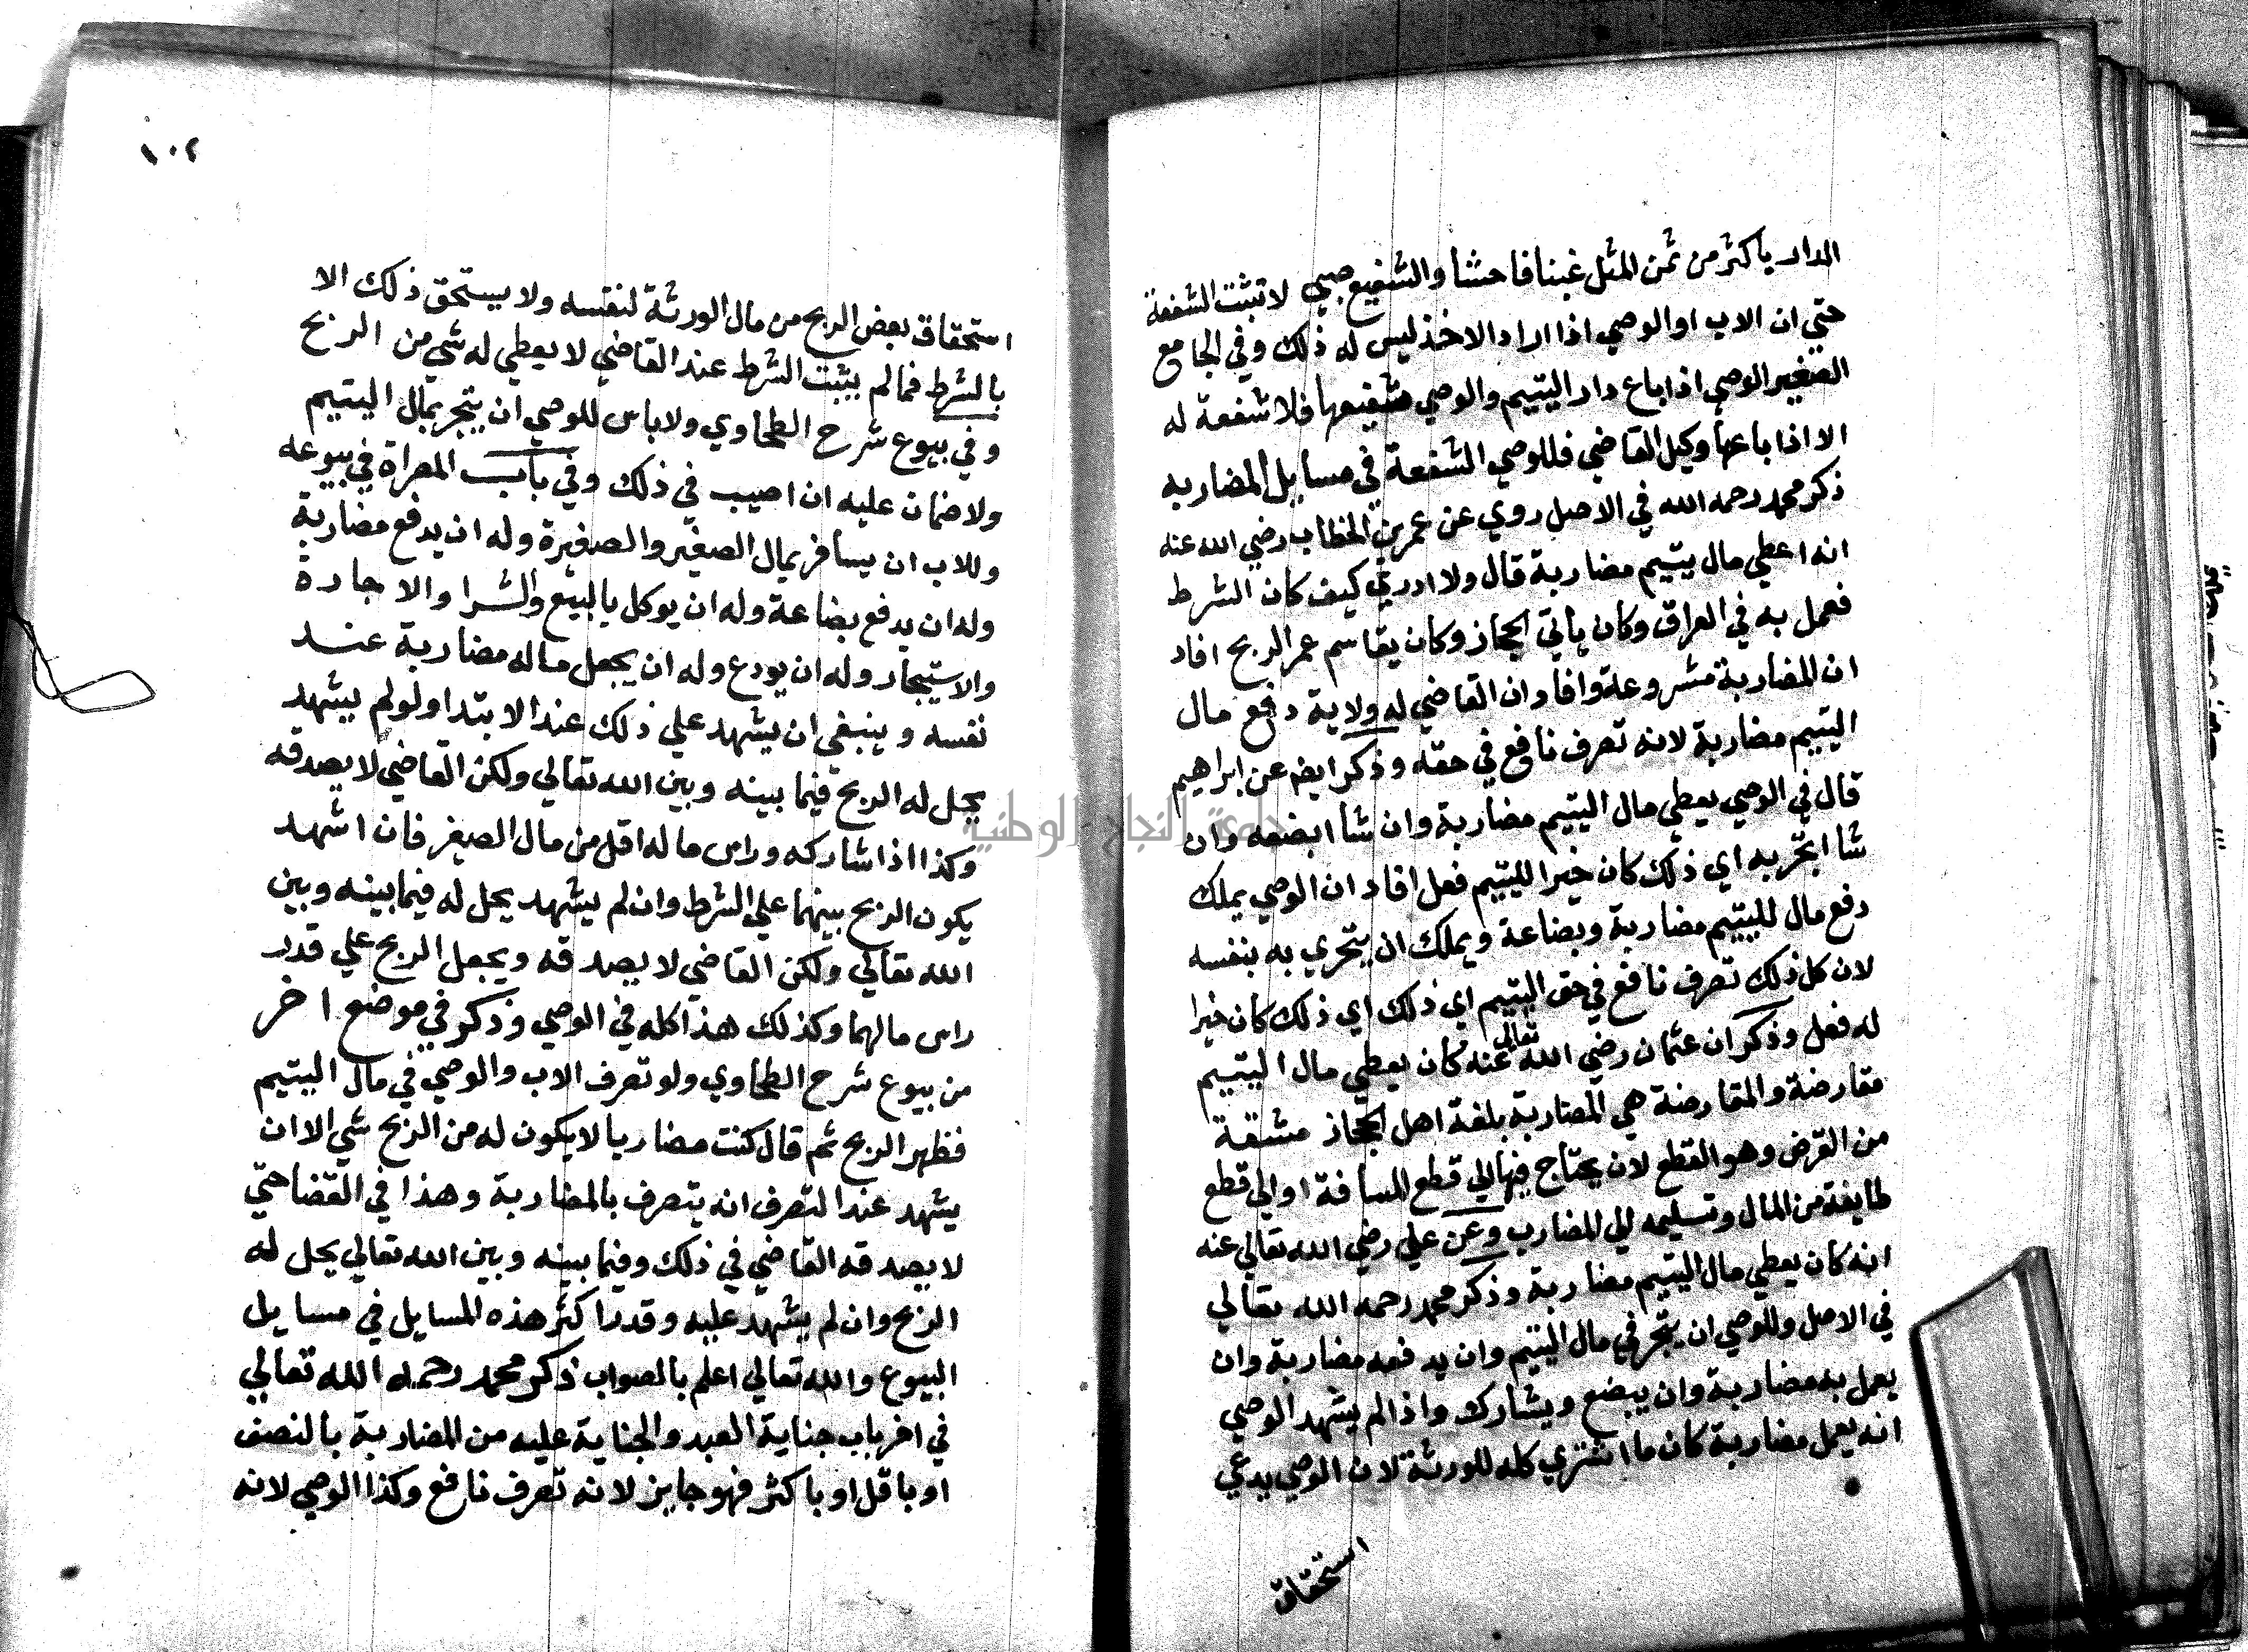 الدار باكثر من ثمن المثل غبنا فاحشا والشفيع صبي لا تثبت الشفعة
حتي ان الاب او الوصي اذا اراد الاخذ ليس له ذلك وفي الجامع
الصغير الوصي اذا باع دار اليتيم والوصي شفيعها فلا شفعة له
الا اذا باعها وكيل القاضي فللوصي الشفعة في مسايل المضاربه
ذكر محمد رحمه الله في الاصل روي عن عمر بن الخطاب رضي الله عنه
انه اعطي مال يتيم مضاربة قال ولا ادري كيف كان الشرط
فعمل به في العراق وكان ياتي الحجاز وكان يقاسم عمر الربح افاد
ان المضاربة مشروعة وافاد ان القاضي له ولاية دفع مال
اليتيم مضاربة لانه تصرف نافع في حقه وذكر ايضا عن ابراهيم
قال في الوصي يعطي مال اليتيم مضاربة وان شا ابضعه وان
شا اتجر به اي ذلك كان خيرا لليتيم فعل افاد ان الوصي يملك
دفع مال لليتيم مضاربة وبضاعة ويملك ان يتجري به بنفسه
لان كل ذلك تصرف نافع في حق اليتيم اي ذلك اي ذلك كان خيرا
له فعل وذكر ان عثمان رضي الله تعالى عنه كان يعطي مال اليتيم
مقارضة والمقارضة هي المضاربة بلغة اهل الحجاز مشتقة
من القرض وهو القطع لان يحتاج فيها الي قطع المسافة او الي قطع
طايفة من المال وتسليمه الي المضارب وعن علي رضي الله تعالي عنه
انه كان يعطي مال اليتيم مضاربة وذكر محمد رحمه الله تعالي
في الاصل وللوصي ان يتجر في مال اليتيم وان يدفعه مضاربة وان
يعمل به مضاربة وان يبضع ويشارك واذا لم يشهد الوصي
انه يعمل مضاربة كان ما اشتري كله للورثة لان الوصي يدعي
استحقاق
١٠٢
استحقاق بعض الربح من مال الورثة لنفسه ولا يستحق ذلك الا
بالشرط فما لم يثبت الشرط عند القاضي لا يعطي له شي من الربح
وفي بيوع شرح الطحاوي ولا باس للوصي ان يتجر بمال اليتيم
ولا ضمان عليه ان اصيب في ذلك وفي باب المصراة في بيوعه
وللاب ان يسافر بمال الصغير والصغيرة وله ان يدفع مضاربة
وله ان يدفع بضاعة وله ان يوكل بالبيع والشرا والاجارة
والاستيجار وله ان يودع وله ان يجعل ماله مضاربة عند
نفسه وينبغي ان يشهد علي ذلك عند الابتدا ولو لم يشهد
يحل له الربح فيما بينه وبين الله تعالي ولكن القاضي لا يصدقه
وكذا اذا شاركه وراس ماله اقل من مال الصغير فان اشهد
يكون الربح بينهما علي الشرط وان لم يشهد يحل له فيما بينه وبين
الله تعالي ولكن القاضي لا يصدقه ويجعل الربح علي قدر
راس مالهما وكذلك هذا كله في الوصي وذكر في موضع اخر
من بيوع شرح الطحاوي ولو تصرف الاب والوصي في مال اليتيم
فظهر الربح ثم قال كنت مضاربا لا يكون له من الربح شي الا ان
يشهد عند التصرف انه يتصرف بالمضاربة وهذا في القضا حتي
لا يصدقه القاضي في ذلك وفيما بينه وبين الله تعالي يحل له
الربح وان لم يشهد عليه وقدر اكثر هذه المسايل في مسايل
البيوع والله تعالي اعلم بالصواب ذكر محمد رحمه الله تعالي
في اخر باب جناية العبد والجناية عليه من المضاربة بالنصف
او باقل او باكثر فهو جايز لانه تصرف نافع وكذا الوصي لانه
جامعة النجاح الوطنية